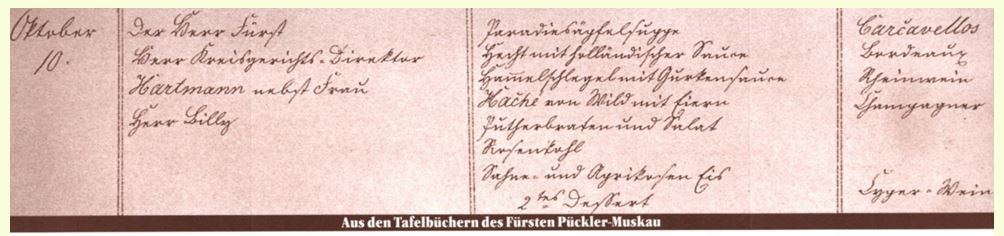 Oktober
10.
Der Herr Fürst
Herr Kreisgerichts-Direktor
Hartmann nebst Frau
Herr Billy
Paradiesäpfelsuppe
Hecht mit holländischer Sauce
Hammelschlegel mit Gurkensauce
Haché von Wild mit Eiern
Putherbraten und Salat
Rosenkohl
Sahne- und Aprikosen Eis
2tes Dessert
Carcavellos
Bordeaux
Rheinwein
Champagner
Cyper-Wein
Aus den Tafelbüchern des Fürsten Pückler-Muskau